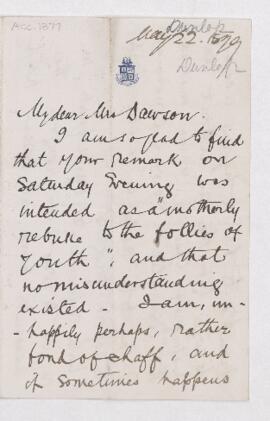 Acc. 1877
Dunlop
May 22. 1879
Dunlop
My dear Mrs Dawson.
I am so glad to find
that your remark on
Saturday Evening was
intended as a "motherly
rebuke to the follies of
youth", and that
no misunderstanding
existed - I am, un-
- happily perhaps, rather
fond of chaff, and
it sometimes happens